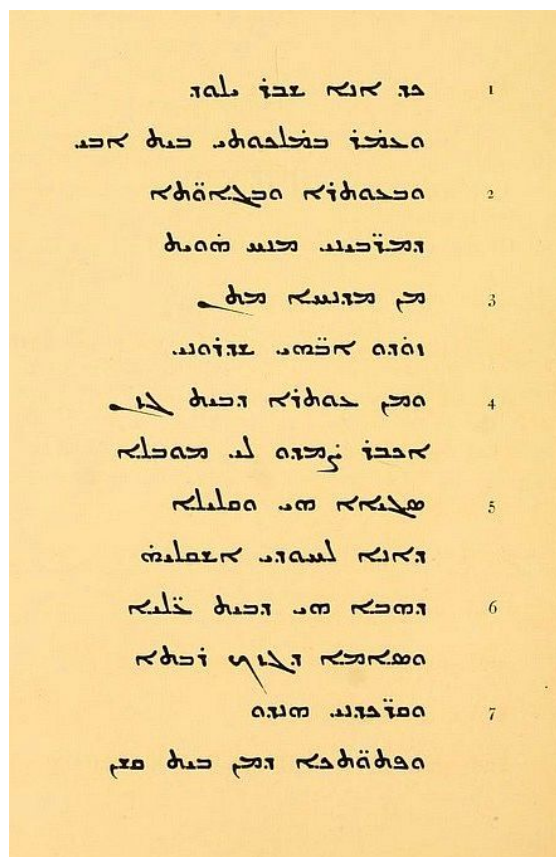 ܟܕ ܐܢܐ ܫܒܪ ܝܠܘܕ 1
ܘܥܡ̇ܪ ܒܡ̇ܠܟܘܬܝ ܒܝܬ ܐܒܝ
ܘܒܥܘܬܪܐ ܘܒܓܐܘ̈ܬܐ 2
ܕܡܪ̈ܒܝܢܝ ܡܢܝܚ ܗ̇ܘܝܬ
ܡܢ ܡܕܢܚܐ ܡܬܢ 3
ܙܘ̇ܕܘ ܐܒ̈ܗܝ ܫܕܪܘܢܝ
ܘܡܢ ܥܘܬܪܐ ܕܒܝܬ ܓܙܢ 4
ܐܟܒܪ ܨܡܕܘ ܠܝ ܡܘܒܠܐ
ܣܓܝܐܐ ܗܝ ܘܩܠܝܠܐ 5
ܕܐܢܐ ܠܚܘܕܝ ܐܫܩܠܝܗ̇
ܕܗܒܐ ܗܝ ܕܒܝܬ ܥ̈ܠܝܐ 6
ܘܣܐܡܐ ܕܓܙܟ ܪܒܬܐ
ܘܩܪ̈ܟܕܢܝ ܗܢܕܘ 7
ܘܦܬܘ̈ܬܟܐ ܕܡܢ ܒܝܬ ܩܫܢ